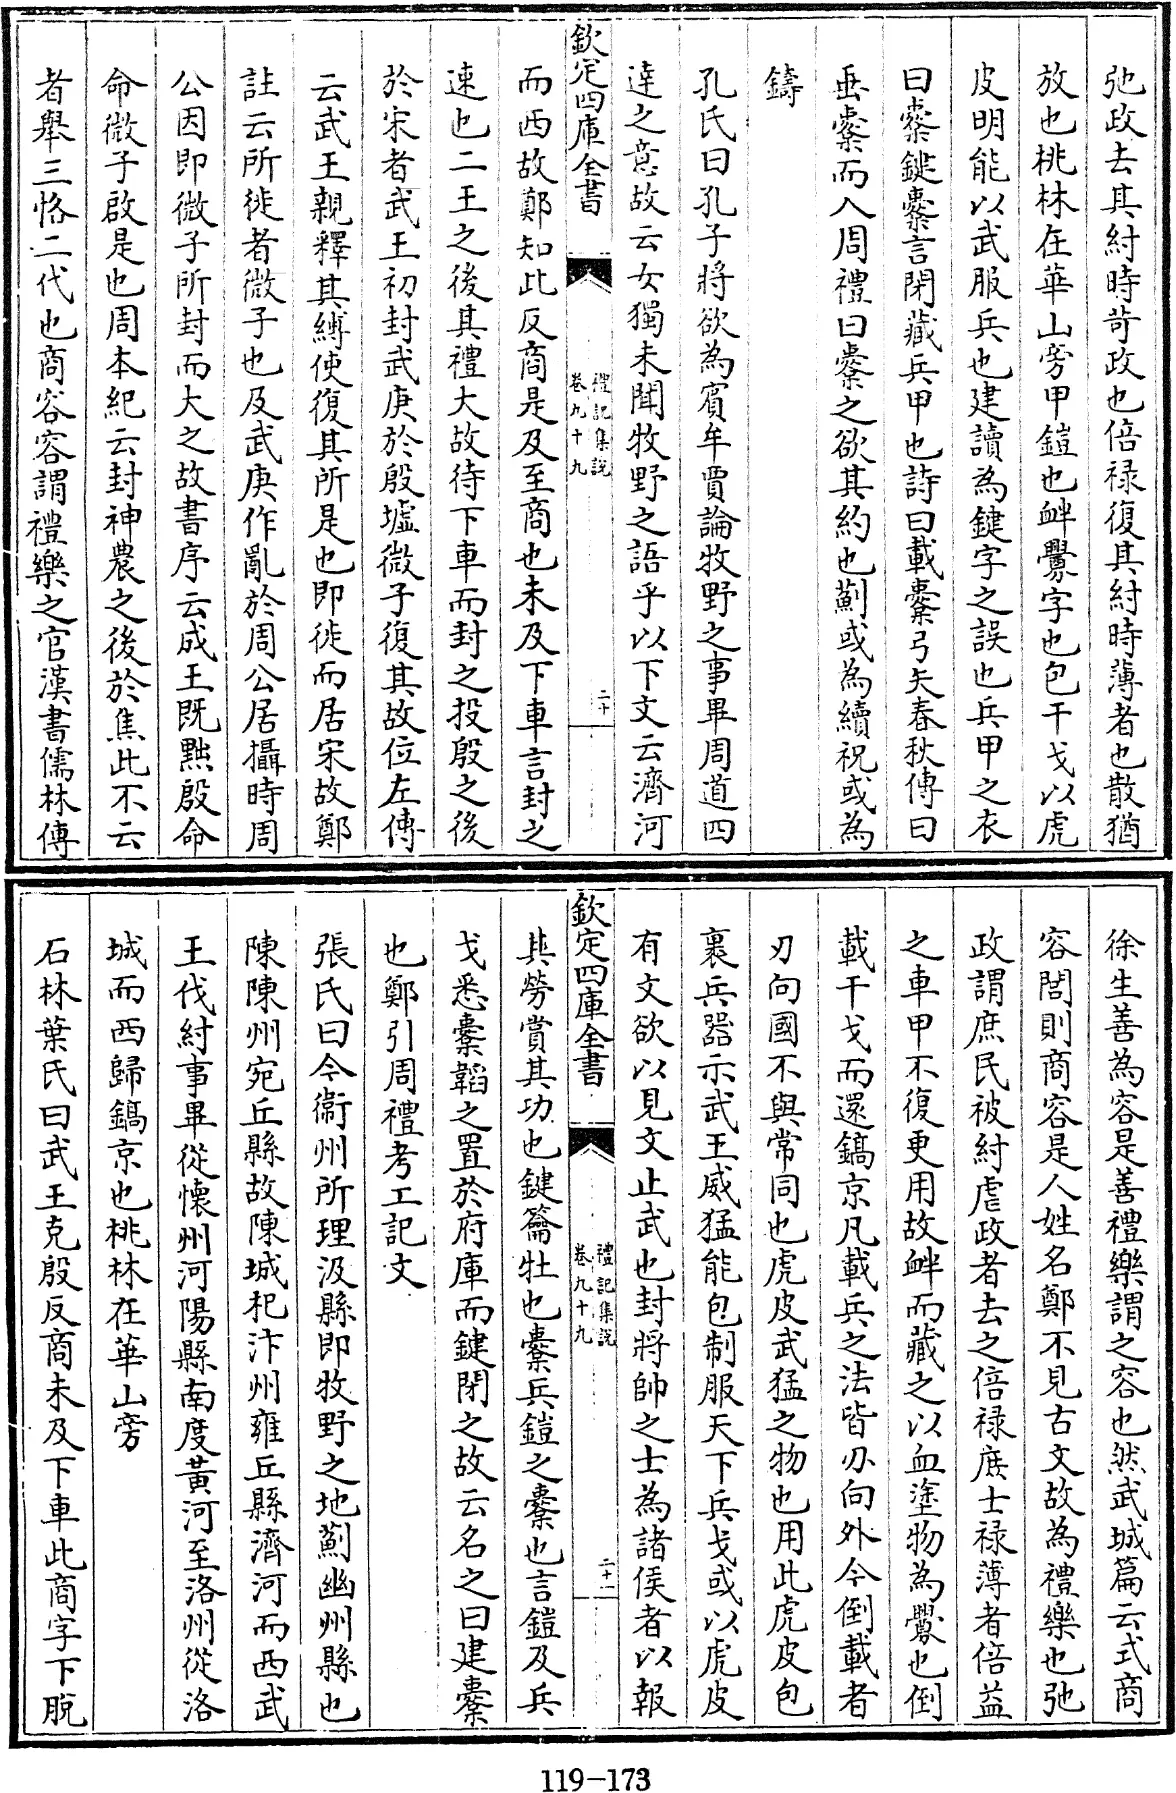 弛政去其紂時苛政也倍禄復其紂時薄者也散猶
放也桃林在華山旁甲鎧也衅釁字也包干戈以虎
皮明能以武服兵也建讀為鍵字之誤也兵甲之衣
曰櫜鍵櫜言閉藏兵甲也詩曰載櫜弓矢春秋傳曰
垂櫜而入周禮曰櫜之欲其約也薊或為續祝或為
鑄
孔氏曰孔子將欲為賓牟賈論牧野之事畢周道四
達之意故云女獨未聞牧野之語乎以下文云濟河
欽定四庫全書
禮記集說
卷九十九
二十
而西故鄭知此反商是及至商也未及下車言封之
速也二王之後其禮大故待下車而封之投殷之後
於宋者武王初封武庚於殷墟微子復其故位左傳
云武王親釋其縛使復其所是也即徙而居宋故鄭
註云所徙者微子也及武庚作亂於周公居攝時周
公因即微子所封而大之故書序云成王既黜殷命
命微子啟是也周本紀云封神農之後於焦此不云
者舉三恪二代也商容容謂禮樂之官漢書儒林傳
徐生善為容是善禮樂謂之容也然武城篇云式商
容閭則商容是人姓名鄭不見古文故為禮樂也弛
政謂庶民被紂虐政者去之倍禄庶士禄薄者倍益
之車甲不復更用故衅而藏之以血塗物為釁也倒
載干戈而還鎬京凡載兵之法皆刃向外今倒載者
刃向國不與常同也虎皮武猛之物也用此虎皮包
裹兵器示武王威猛能包制服天下兵戈或以虎皮
有文欲以見文止武也封將帥之士為諸侯者以報
欽定四庫全書
禮記集說
卷九十九
二十一
其勞賞其功也鍵籥牡也櫜兵鎧之櫜也言鎧及兵
戈悉櫜韜之置於府庫而鍵閉之故云名之曰建櫜
也鄭引周禮考工記文
張氏曰今衛州所理汲縣即牧野之地薊幽州縣也
陳陳州宛丘縣故陳城杞汴州雍丘縣濟河而西武
王伐紂事畢從懷州河陽縣南度黃河至洛州從洛
城而西歸鎬京也桃林在華山旁
石林葉氏曰武王克殷反商未及下車此商字下脫
119-173